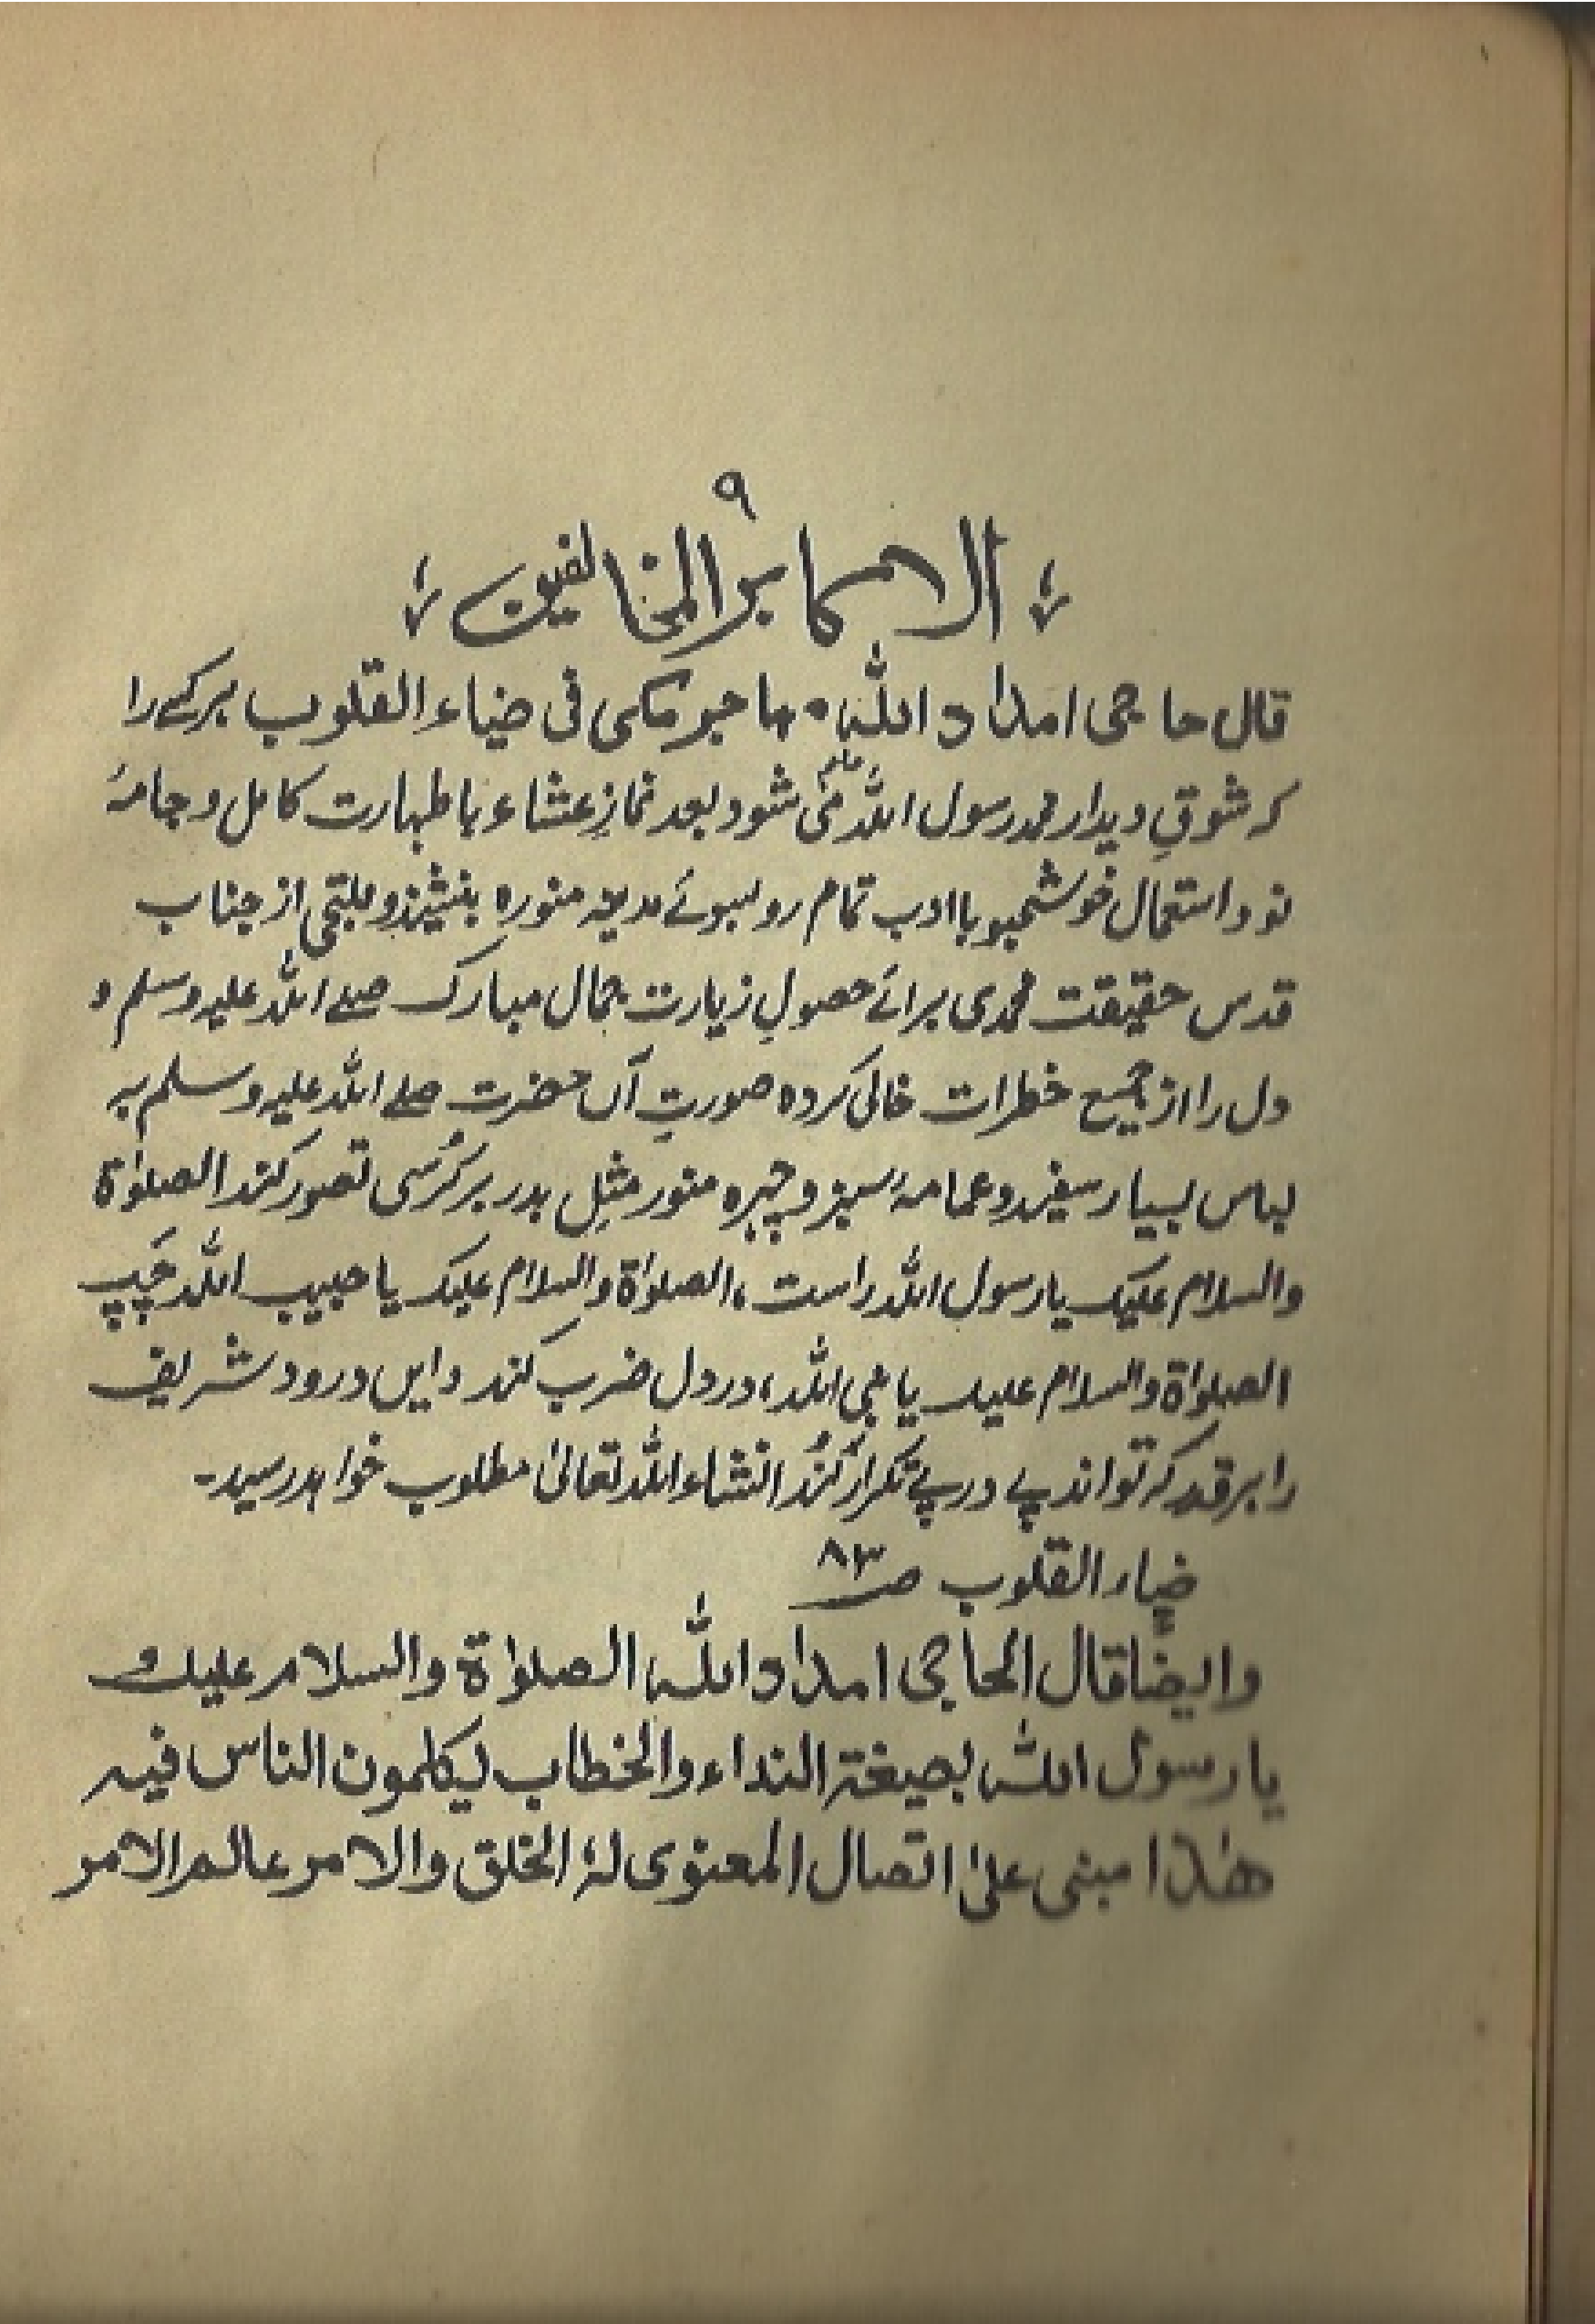 ۹
الاکابر المخالفین
قال حاجی امداد اللہ مہاجر مکی فی ضیاء القلوب ہر کسے را
کہ شوقِ دیدار محمد رسول اللہ می شود بعد نمازِ عشاء با طہارت کامل و جامۂ
نو و استعمال خوشبو با ادب تمام رو بسوئے مدینہ منورہ بنشیند و ملتجی از جناب
قدس حقیقت محمدی برائے حصولِ زیارت جمال مبارک صلے اللہ علیہ وسلم و
دل را از جمیع خطرات خالی کردہ صورتِ آں حضرت صلے اللہ علیہ وسلم بہ
لباس بسیار سفید و عمامۂ سبز و چہرہ منور مثلِ بدر بر کُرسی تصور کند الصلوٰۃ
والسلام علیک یا رسول اللہ راست، الصلوٰۃ والسلام علیک یا حبیب اللہ چَپ
الصلوٰۃ والسلام علیک یا نبی اللہ، در دل ضرب کند و ایں درود شریف
را ہر قدر کہ تواند پے در پے تکرار کُند انشاء اللہ تعالیٰ مطلوب خواہد رسید۔
ضیاء القلوب ص ۸۳
وایضا قال الحاجی امداد اللہ الصلوٰۃ والسلام علیک
یا رسول اللہ بصیغۃ النداء والخطاب لیکلمون الناس فیہ
ھٰذا مبنی علیٰ اتصال المعنوی لہٗ الخلق والامر عالم الامر